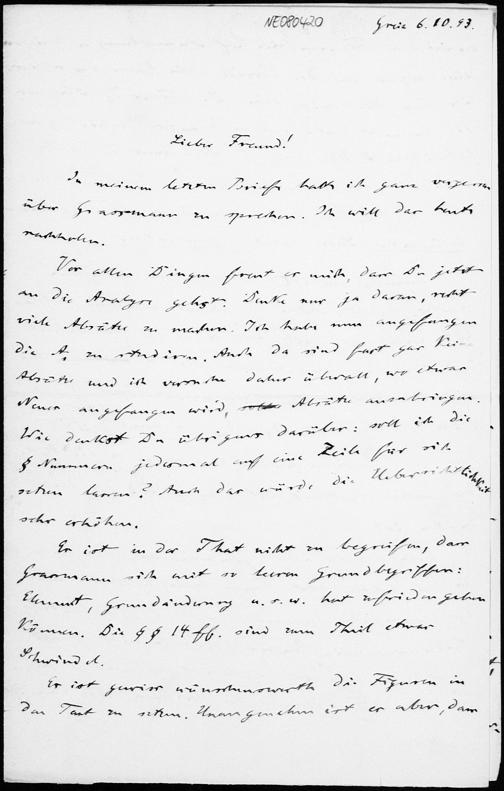 NE080420
Greiz 6.10.93.
Lieber Freund!
In meinem letzten Briefe hatte ich ganz vergessen
über Grassmann zu sprechen. Ich will das heute
nachholen.
Vor allen Dingen freut es mich, dass Du jetzt
an die Analyse gehst. Denke nur ja daran, recht
viele Absätze zu machen. Ich habe nun angefangen
die A₁ zu studiren. Auch da sind fast gar keine
Absätze und ich versuche daher überall, wo etwas
Neues angefangen wird, Absätze anzubringen.
Wie denkst Du übrigens darüber: soll ich die
§ Nummern jedesmal auf eine Zeile für sich
setzen lassen? Auch das würde die Uebersichtlichkeit
sehr erhöhen.
Es ist in der That nicht zu begreifen, dass
Grassmann sich mit so leeren Grundbegriffen:
Element, Grundänderung u.s.w. hat zufrieden geben
können. Die §§ 14 ff. sind zum Theil etwas
Schwindel.
Es ist gewiss wünschenswerth die Figuren in
den Text zu setzen. Unangenehm ist es aber, dass